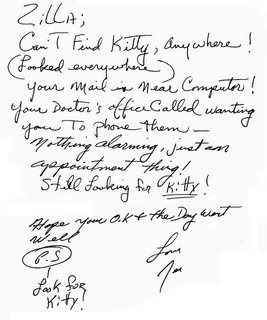 Zilla;
Can't Find Kitty, anywhere!
(Looked everywhere)
your Mail is Near Computor!
your Doctor's office Called wanting
you To phone them —
Nothing alarming, just an
appointment thing!
Still Looking for Kitty!
Hope your O.K & the Day went
well
Love
P.S
Look for
Kitty!